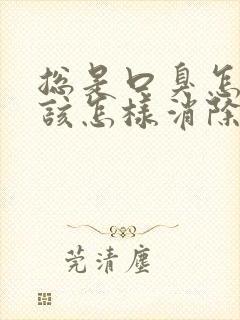 總是口臭怎
該怎樣消除
莞清塵